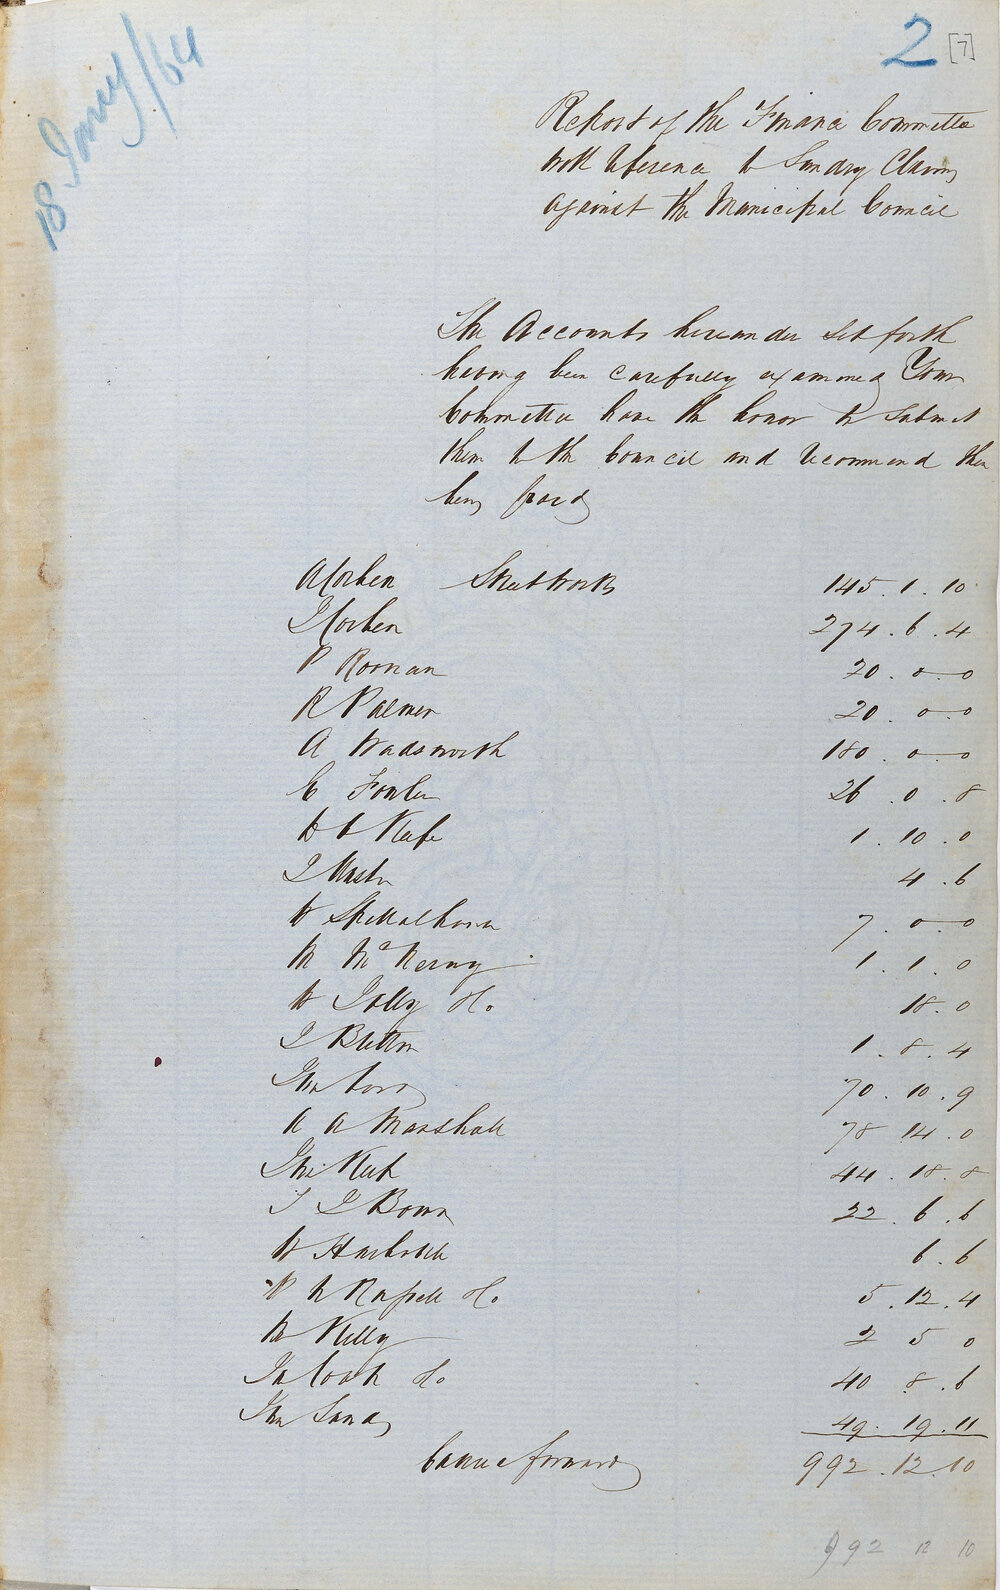 18 Jany/64
2 [7]
Report of the Finance Committee
with reference to Sundry Claims
against the Municipal Council
The Accounts hereunder set forth
having been carefully examined Your
Committee have the honor to submit
them to the Council and recommend their
being paid
A Corben Streetwork 145 . 1 . 10
J Corben 274 . 6 . 4
P Roonan 20 . 0 - 0
R Palmer 20 . 0 - 0
A Wadsworth 180 . 0 - 0
E Fowler 26 . 0 . 8
D O Keefe 1 . 10 . 0
J 4 . 6
W 7 . 0 - 0
M McKerny 1 . 1 . 0
W Jolly & Co 18 . 0
J Button 1 . 8 . 4
Jno 70 . 10 . 9
A A Marshall 78 14 . 0
Jno Keep 44 . 18 . 8
T J Bown 22 . 6 . 6
W 6 . 6
P N Russell & Co 5 . 12 . 4
M Kelly 2 5 0
Cook & Co 40 8 . 6
Jno Sands 49 . 19 . 11
Carried forward 992 . 12 . 10
992 12 10